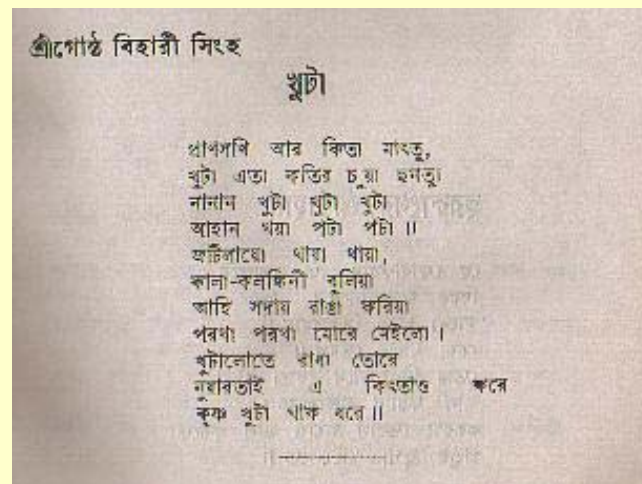 শ্রীগোষ্ঠ বিহারী সিংহ
খুটা
প্রাণসখি আর কিতা মাংতু,
খুটা এতা কতির চুয়া ছনতু।
নানান খুটা খুটা খুটা
আহান থয়া পটা পটা ॥
জটিলায়ো থায়া থায়া,
কালা-কলঙ্কিনী বুলিয়া
আহি সদায় রাঙা করিয়া
পরথা পরথা মোরে মেইলো ।
খুটালোতে রাধা তোরে
নুয়ারতাই এ কিংতাও করে
কৃষ্ণ খুটা থাক ধরে ॥